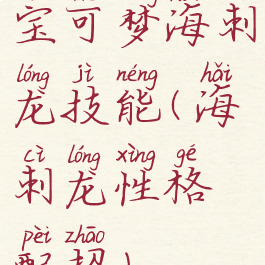 宝可梦海刺
lóng jì néng hǎi
龙技能(海
cì lóng xìng gé
刺龙性格
pèi zhāo
配招)